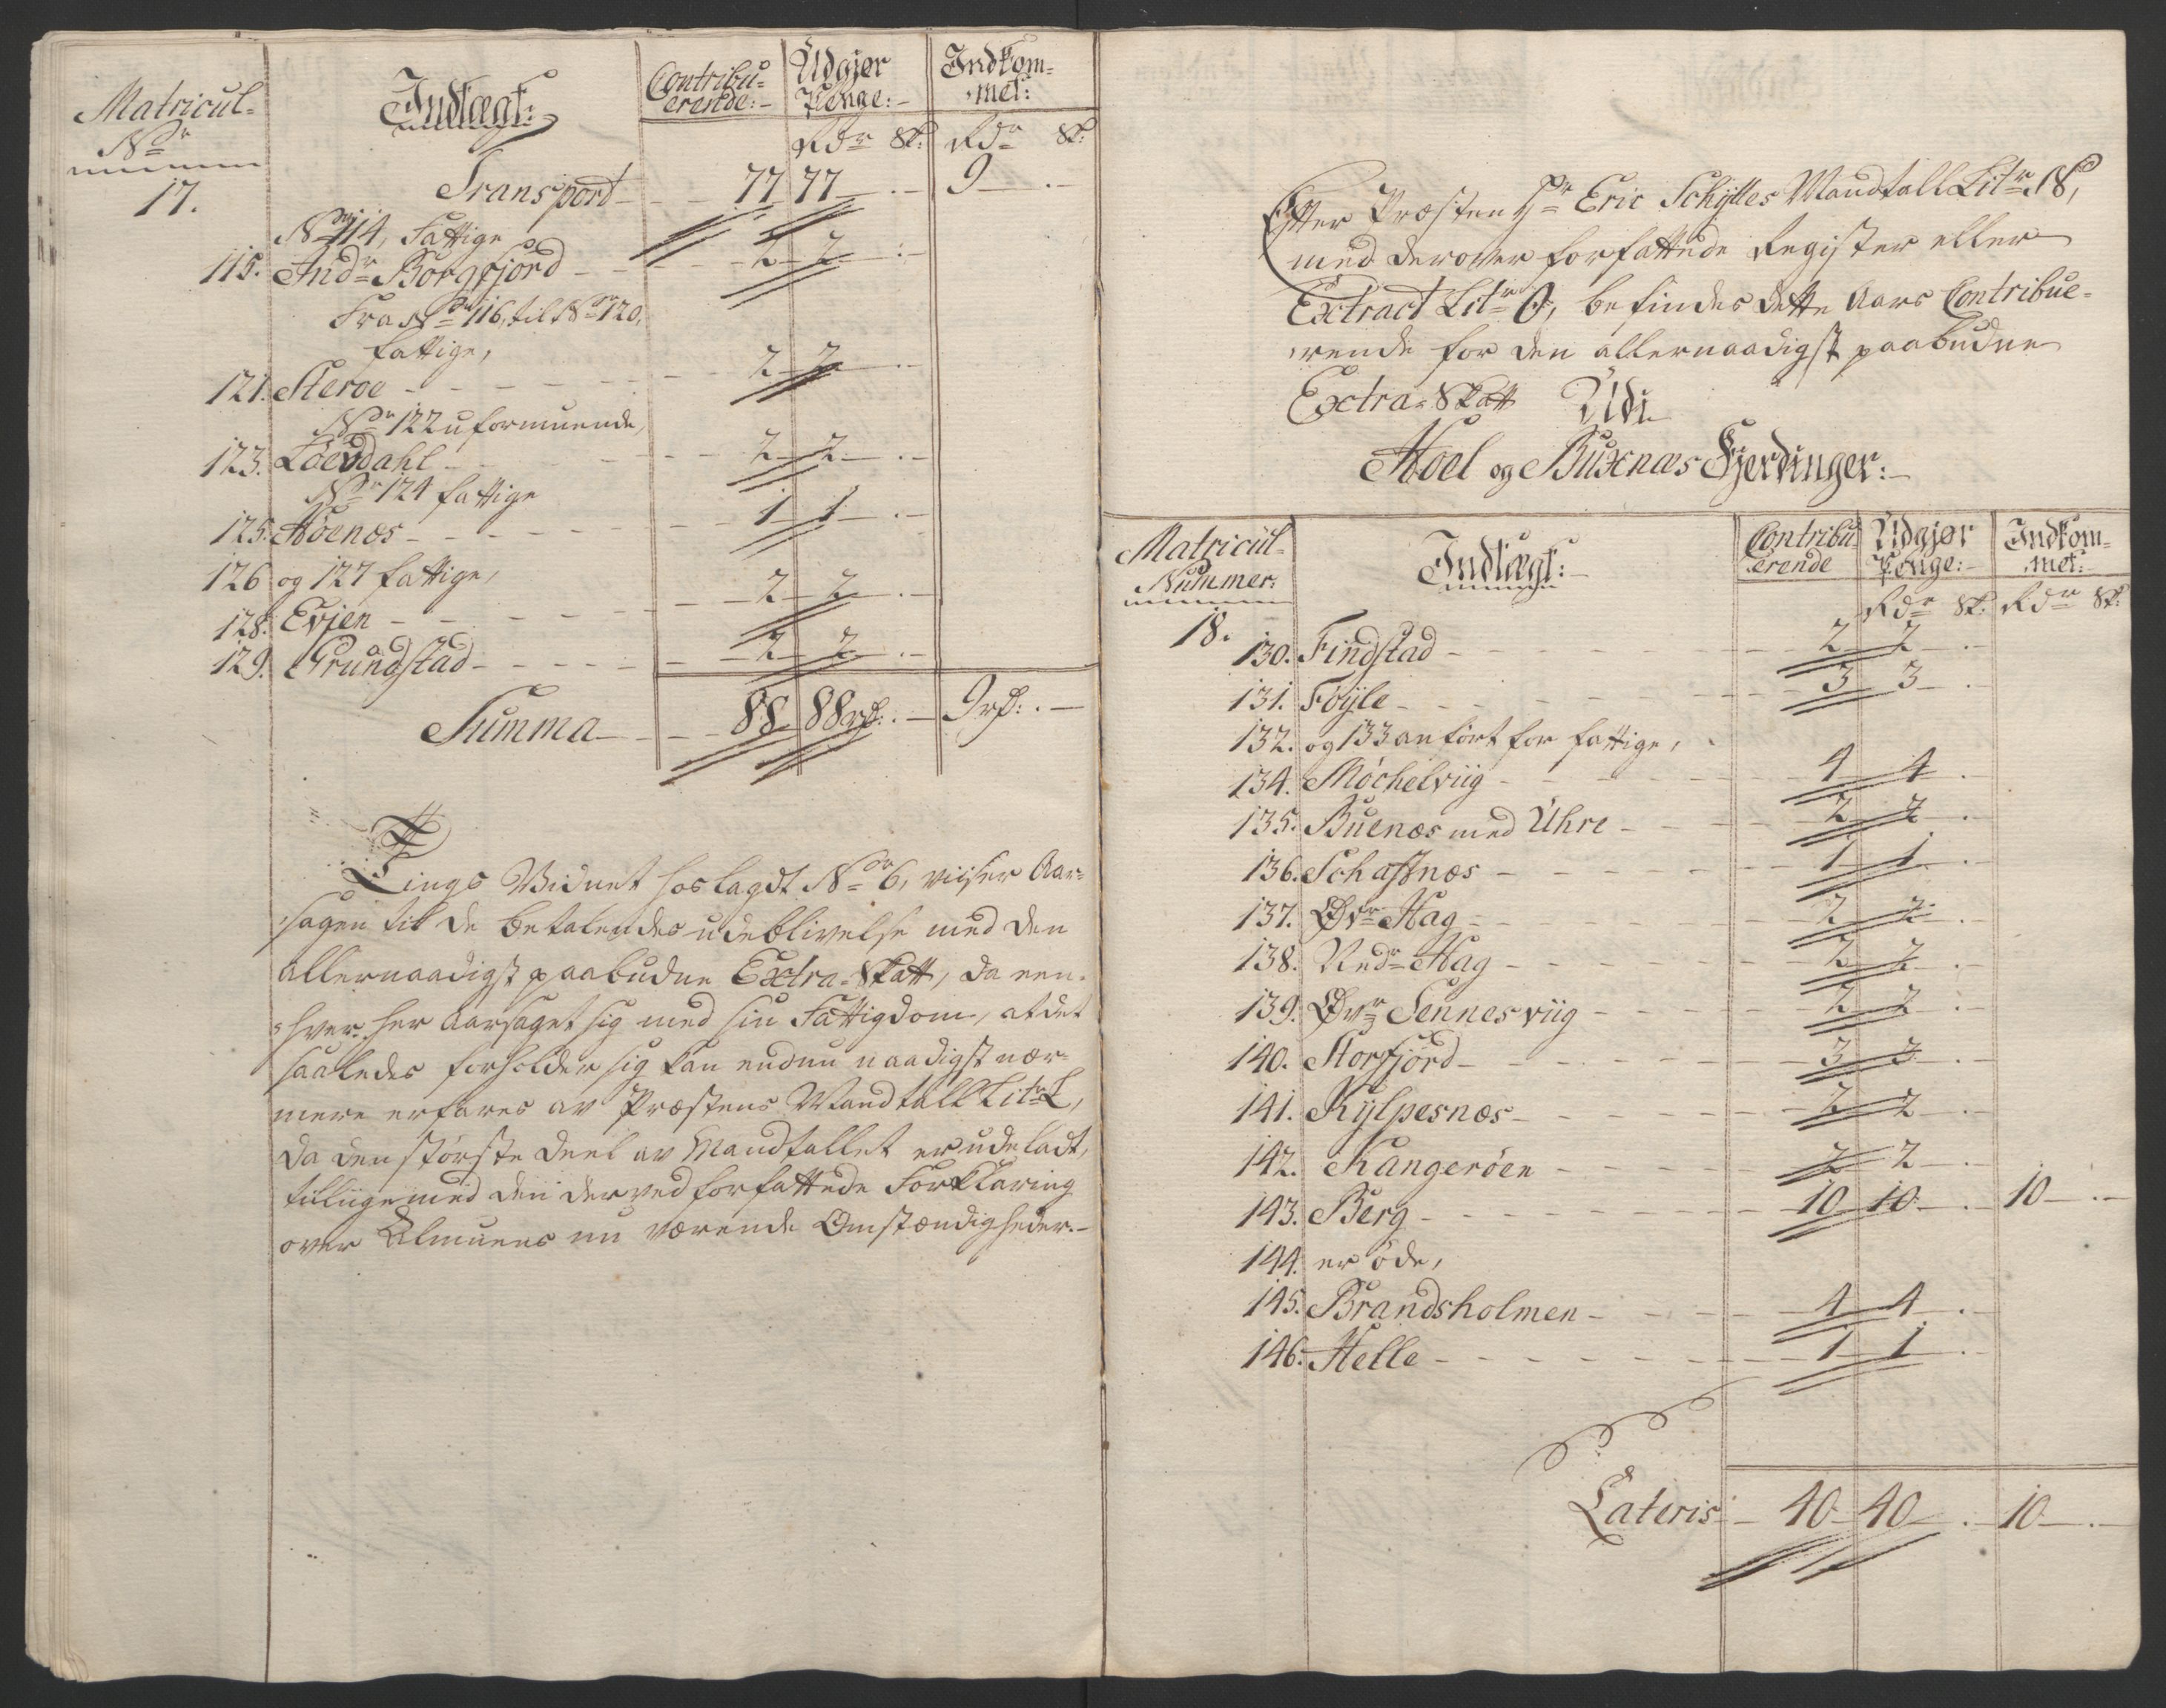 Matricul-
Nr
Indtægt:
Contribu-
erende:
Udgjør
Penge:
Indkom-
met:
Rdr Sk: Rdr Sk:
17. Transport 77 77 9
Nr 114, Fattige
115. Indr Borgfjord 2 2
Fra Nr 116, til Nr 120,
fattige,
121. Steroe 2 2
Nr 122 uformuende,
123. Løevdahl 2 2
Nr 124 fattige
125. Høenæs 1 1
126 og 127 fattige,
128. Evjen 2 2
129. Grundstad 2 2
Summa 88 88 rd: 9 rd:
Tings Vidnet hoslagdt No 6, viiser Aar-
sagen til de betalendes udeblivelse med den
allernaadigst paabudne Extra-Skatt, da een-
hver her aarsaget sig med sin Fattigdom, at det
saaledes forholder sig kan endnu naadigst nær-
mere erfares av Præstens Mandtall Litr L,
da den største deel av Mandtallet er udeladt,
tilligemed den derved forfattede Forklaring
over Almuens nu værende Omstændigheder.
Efter Præsten Hr Eric Schyttes Mandtall Litr N,
med derover forfattede Register eller
Extract Litr O, befindes dette Aars Contribue-
rende for den allernaadigst paabudne
Extra-Skatt Udi
Hoel og Buxnæs Fjerdinger:
Matricul-
Nummer:
Indtægt:
Contribu-
erende
Udgjør
Penge:
Indkom-
met:
Rdr Sk: Rdr Sk:
18.
130. Findstad 2 2
131. Føyle 3 3
132. og 133 anført for fattige,
134. Møchelviig 4 4
135. Buenæs med Uhre 2 2
136. Schaftnæs 1 1
137. Øvr Hag 2 2
138. Nedr Hag 2 2
139. Øvr Sennesviig 2 2
140. Storfjord 3 3
141. Kylpesnæs 2 2
142. Kangerøen 2 2
143. Berg 10 10 10
144. er øde,
145. Brandsholmen 4 4
146. Helle 1 1
Lateris 40 40 10